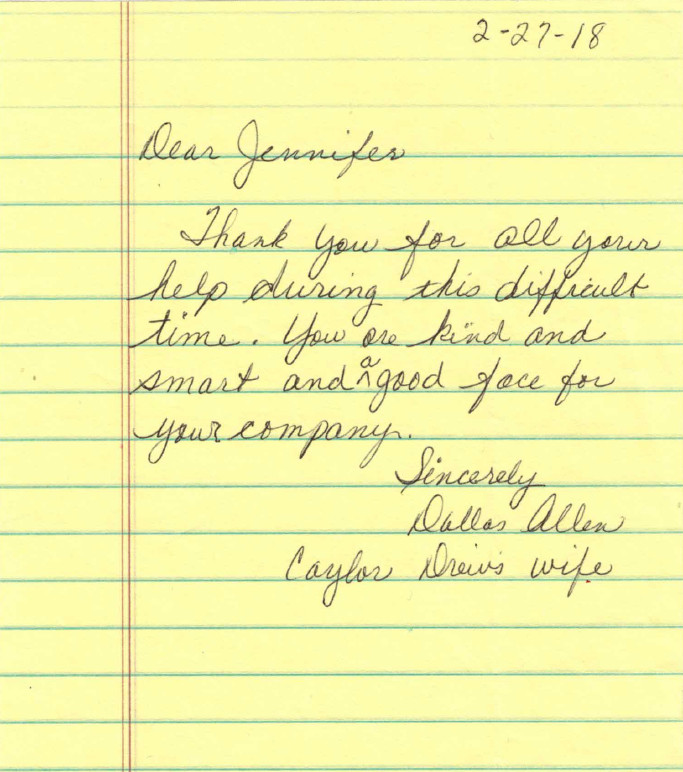 2-27-18
Dear Jennifer
Thank you for all your
help during this difficult
time. You are kind and
smart and a good face for
your company.
Sincerely
Dallas Allen
Caylor Drew's wife